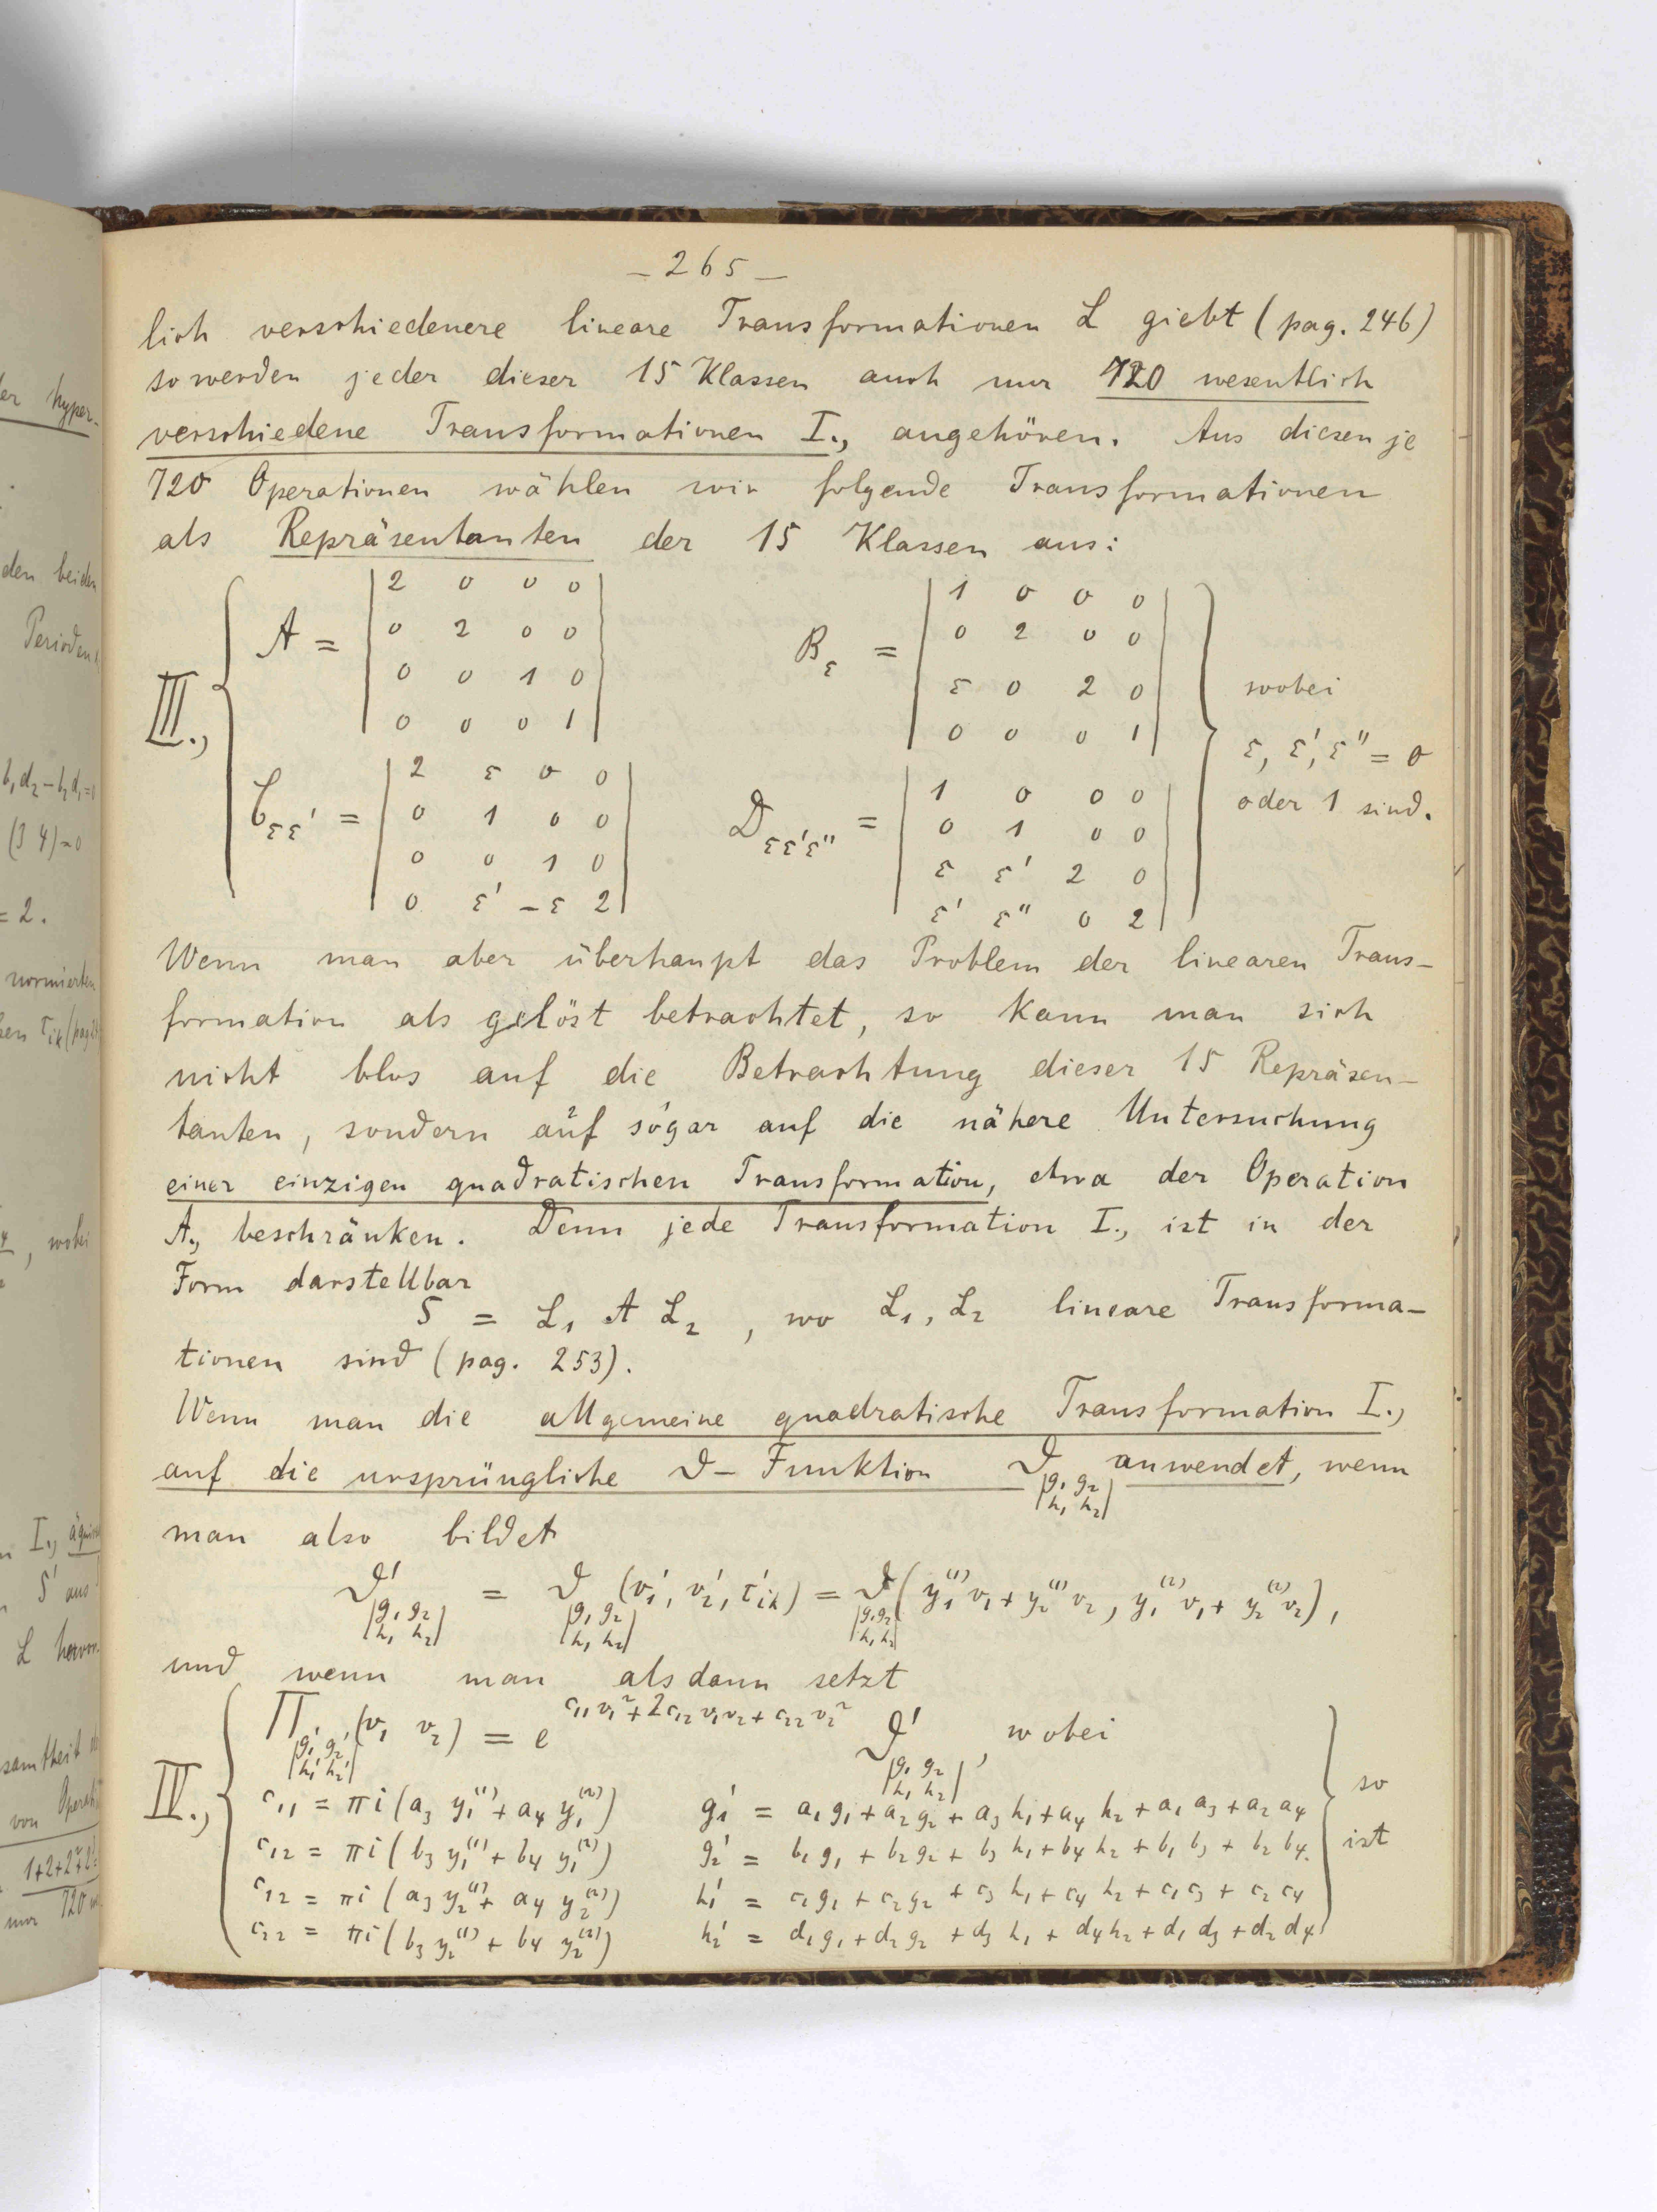 – 265 –
lich verschiedenere lineare Transformationen L giebt (pag. 246)
so werden jeder dieser 15 Klassen auch nur 720 wesentlich
verschiedene Transformationen I., angehören. Aus diesen je
720 Operationen wählen wir folgende Transformationen
als Repräsentanten der 15 Klassen aus:
III.,
A = | 2 0 0 0 | 0 2 0 0 | 0 0 1 0 | 0 0 0 1 |
B_ε = | 1 0 0 0 | 0 2 0 0 | ε 0 2 0 | 0 0 0 1 |
C_εε' = | 2 ε 0 0 | 0 1 0 0 | 0 0 1 0 | 0 ε' –ε 2 |
D_εε'ε'' = | 1 0 0 0 | 0 1 0 0 | ε ε' 2 0 | ε' ε'' 0 2 |
wobei
ε, ε', ε'' = 0
oder 1 sind.
Wenn man aber überhaupt das Problem der linearen Trans-
formation als gelöst betrachtet, so kann man sich
nicht blos auf die Betrachtung dieser 15 Repräsen-
tanten, sondern auf² sogar¹ auf die nähere Untersuchung
einer einzigen quadratischen Transformation, etwa der Operation
A., beschränken. Denn jede Transformation I., ist in der
Form darstellbar
S = L₁ A L₂, wo L₁, L₂ lineare Transforma-
tionen sind (pag. 253).
Wenn man die allgemeine quadratische Transformation I.,
auf die ursprüngliche ϑ– Funktion ϑ_|g₁ g₂ h₁ h₂| anwendet, wenn
man also bildet
ϑ'_|g₁ g₂ h₁ h₂| = ϑ_|g₁ g₂ h₁ h₂| (v₁', v₂', τ'ik) = ϑ_|g₁ g₂ h₁ h₂| (y₁⁽¹⁾v₁ + y₂⁽¹⁾v₂, y₁⁽²⁾v₁ + y₂⁽²⁾v₂),
und wenn man alsdann setzt
IV.,
Π_|g₁' g₂' h₁' h₂'| (v₁ v₂) = e^(c₁₁v₁² + 2c₁₂v₁v₂ + c₂₂v₂²) ϑ'_|g₁ g₂ h₁ h₂|, wobei
c₁₁ = πi (a₃ y₁⁽¹⁾ + a₄ y₁⁽²⁾) g₁' = a₁g₁ + a₂g₂ + a₃h₁ + a₄h₂ + a₁a₃ + a₂a₄
c₁₂ = πi (b₃ y₁⁽¹⁾ + b₄ y₁⁽²⁾) g₂' = b₁g₁ + b₂g₂ + b₃h₁ + b₄h₂ + b₁b₃ + b₂b₄.
c₁₂ = πi (a₃ y₂⁽¹⁾ + a₄ y₂⁽²⁾) h₁' = c₁g₁ + c₂g₂ + c₃h₁ + c₄h₂ + c₁c₃ + c₂c₄
c₂₂ = πi (b₃ y₂⁽¹⁾ + b₄ y₂⁽²⁾) h₂' = d₁g₁ + d₂g₂ + d₃h₁ + d₄h₂ + d₁d₃ + d₂d₄
so
ist